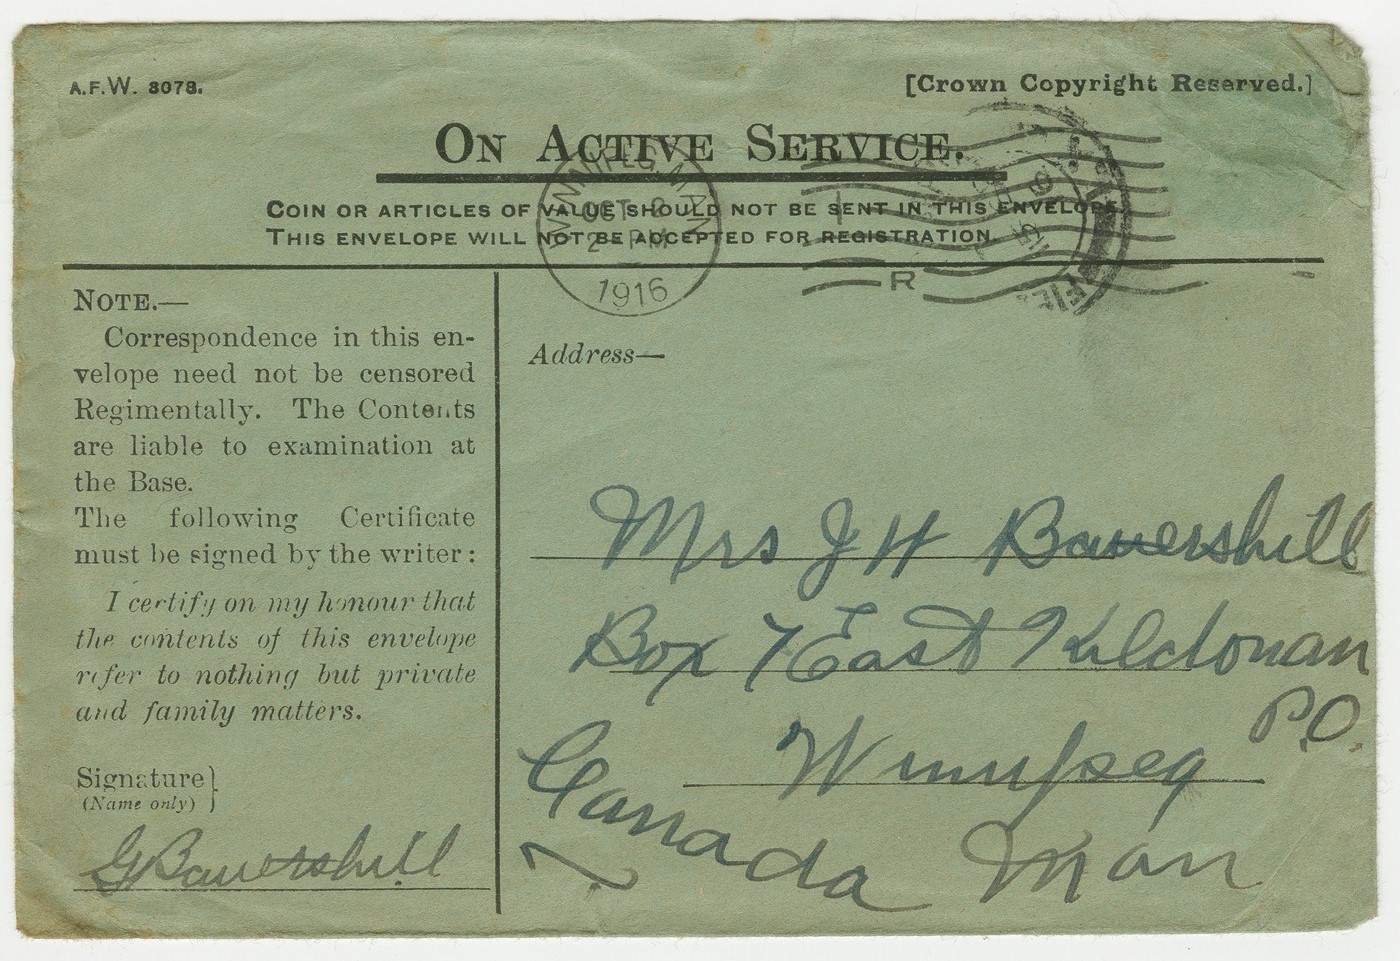 A.F.W. 3078.
[Crown Copyright Reserved.]
ON ACTIVE SERVICE.
COIN OR ARTICLES OF VALUE SHOULD NOT BE SENT IN THIS ENVELOPE.
THIS ENVELOPE WILL NOT BE ACCEPTED FOR REGISTRATION.
WINNIPEG MAN
OCT
2 PM
1916
R
NOTE.—
Correspondence in this en-
velope need not be censored
Regimentally. The Contents
are liable to examination at
the Base.
The following Certificate
must be signed by the writer:
I certify on my honour that
the contents of this envelope
refer to nothing but private
and family matters.
Signature}
(Name only)
G Bauershill
Address—
Mrs J H Bauershill
Box 7 East Kildonan
P.O.
Winnipeg
Canada Man